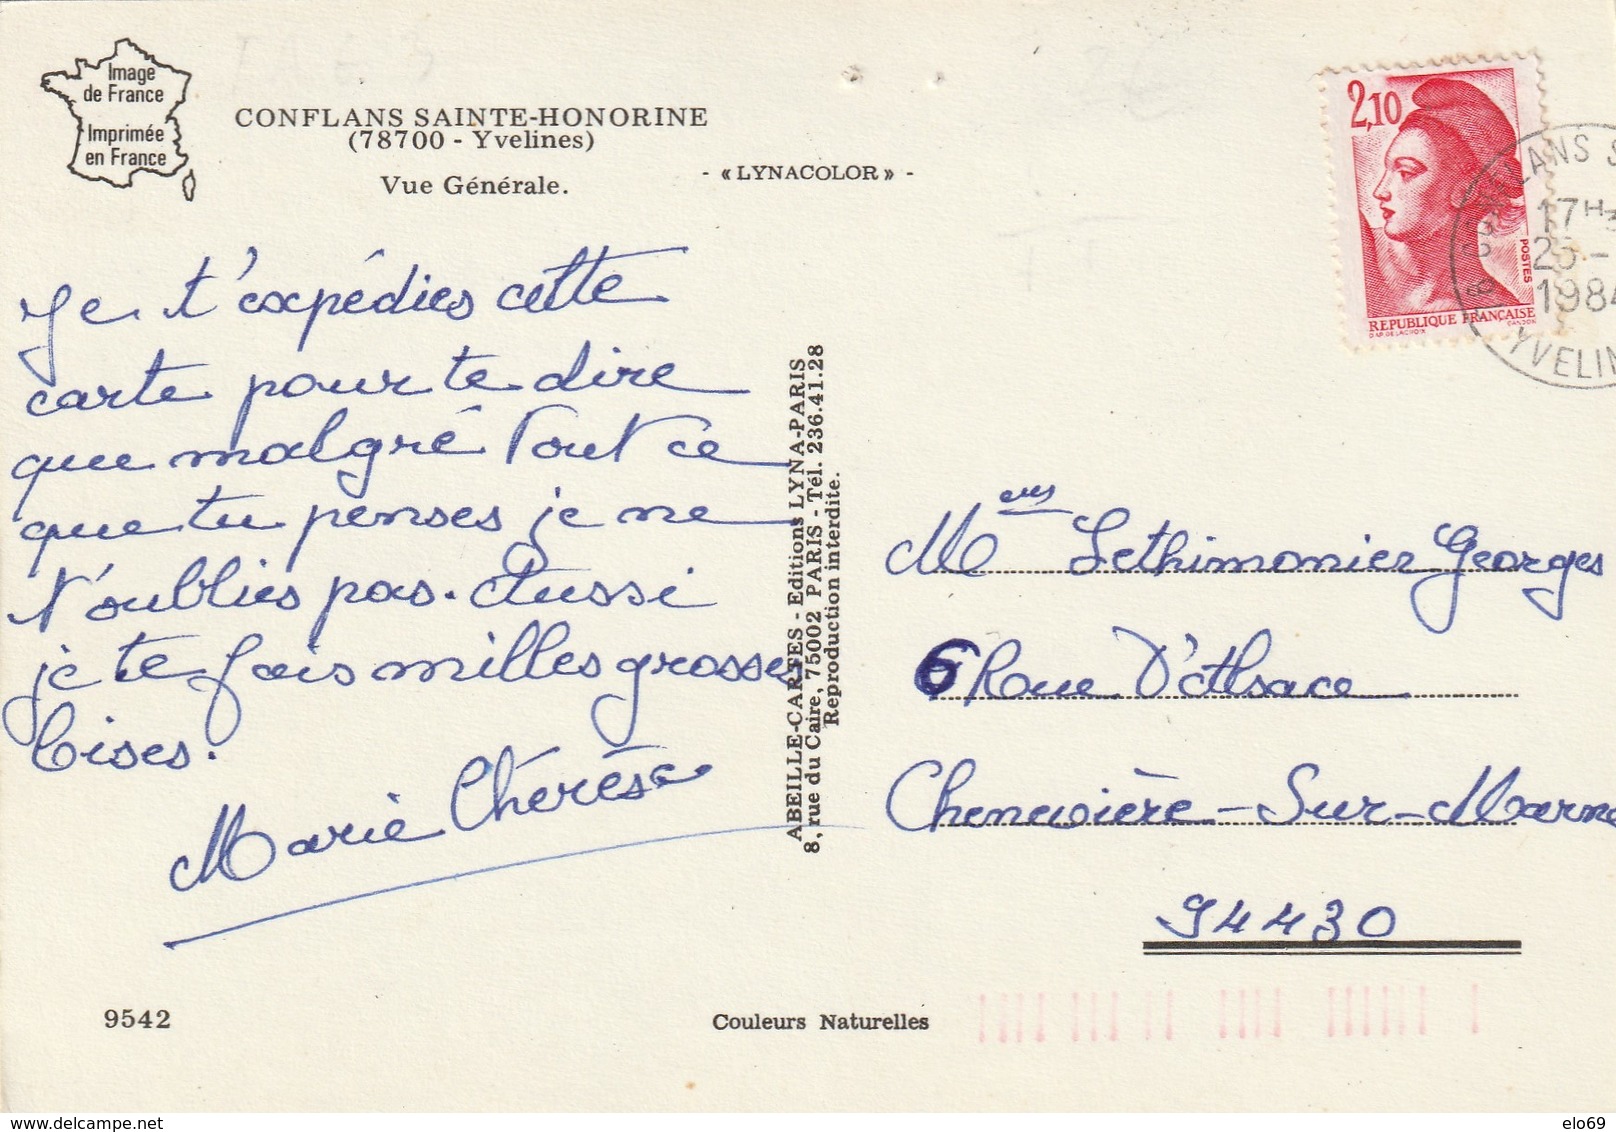 Image
de France
Imprimée
en France
CONFLANS SAINTE-HONORINE
(78700 - Yvelines)
Vue Générale.
- « LYNACOLOR » -
2,10
POSTES
REPUBLIQUE FRANÇAISE
17H
1984
YVELIN
Je t'expédies cette
carte pour te dire
que malgré tout ce
que tu penses je ne
t'oublies pas. Aussi
je te fais milles grosses
bises.
Marie Thérèse
ABEILLE-CARTES - Editions LYNA-PARIS
8, rue du Caire, 75002 PARIS - Tél. 236.41.28
Reproduction interdite.
Lethimonier Georges
6 Rue D'Alsace
Chenevière-Sur-Marne
94430
9542
Couleurs Naturelles
elo69